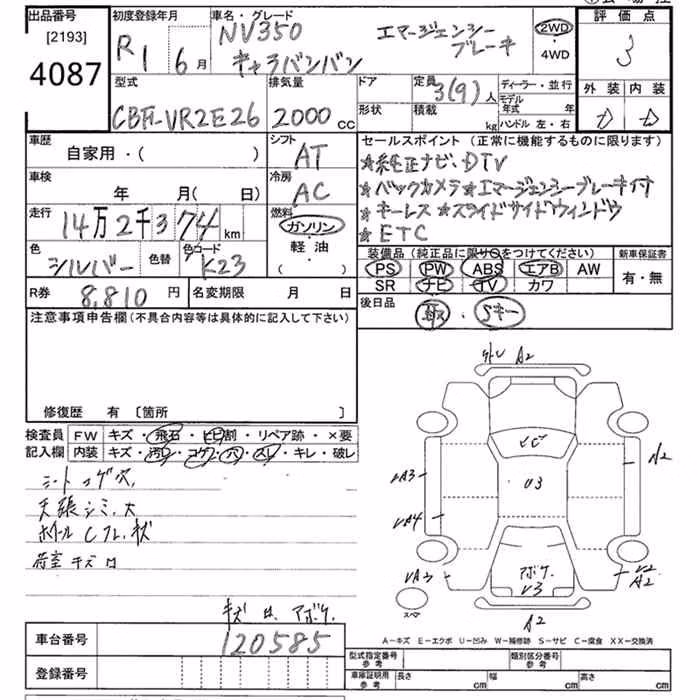 出品番号 初度登録年月 車名・グレード 評価点
[2193]
4087
R1 6月
NV350 エマージェンシーブレーキ
キャラバンバン
2WD
4WD
3
型式 排気量 ドア 定員 ディーラー・並行
CBF-VR2E26 2000cc 3(9)人
形状 積載 kg
モデル年式 年
ハンドル 左・右
外装 内装
D D
車歴 シフト セールスポイント (正常に機能するものに限ります)
自家用・( ) AT
★純正ナビ、DTV
★バックカメラ★エマージェンシーブレーキ付
★キーレス ★スライドサイドウィンドウ
★ETC
車検 冷房
年 月( 日) AC
走行 燃料
14万2千374km
ガソリン
軽油
( ・ )
色 色替 色コード
シルバー K23
装備品 (純正品に限り○をつけてください) 新車保証書
PS PW ABS エアB AW
SR ナビ TV カワ
有・無
R券 8,810円 名変期限 月 日
後日品 取 ・ Sキー
注意事項申告欄 (不具合内容等は具体的に記入して下さい)
修復歴 有 〔箇所 〕
検査員記入欄
FW キズ・飛石・ヒビ割・リペア跡・×要
内装 キズ・汚レ・コゲ・穴・スレ・キレ・破レ
シートコゲ穴、
天張シミ、大
ホイールCフレ、キズ
荷室キズ
キズ アボケ
外レ A2
ヒビ
UA3
U3
A2
UA4
UA3
アボケ
U3
U2
A2
A2
スペア
車台番号 120585
登録番号
A-キズ E-エクボ U-凹み W-補修跡 S-サビ C-腐食 XX-交換済
型式指定番号 参考 類別区分番号 参考
車庫証明用 参考 長さ cm 幅 cm 高さ cm